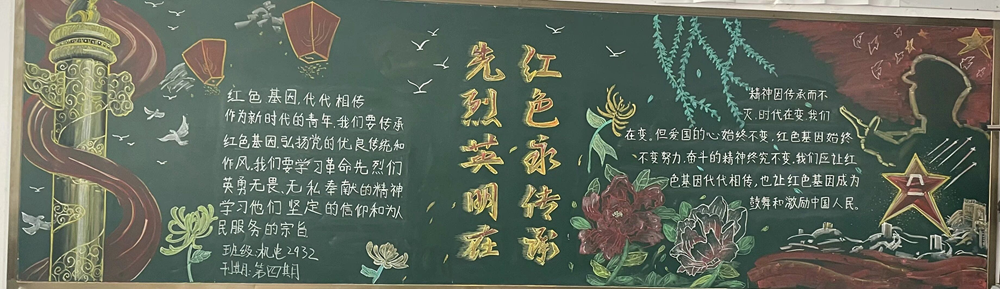 红色基因,代代相传
作为新时代的青年,我们要传承
红色基因弘扬党的优良传统和
作风,我们要学习革命先烈们
英勇无畏、无私奉献的精神
学习他们坚定的信仰和为人
民服务的宗旨
班级:机电2932
刊期:第四期
先烈英明在
红色永传承
精神因传承而不
灭,时代在变,我们
在变,但爱国的心始终不变,红色基因始终
不变努力,奋斗的精神终究不变,我们应让红
色基因代代相传,也让红色基因成为
鼓舞和激励中国人民。
八一